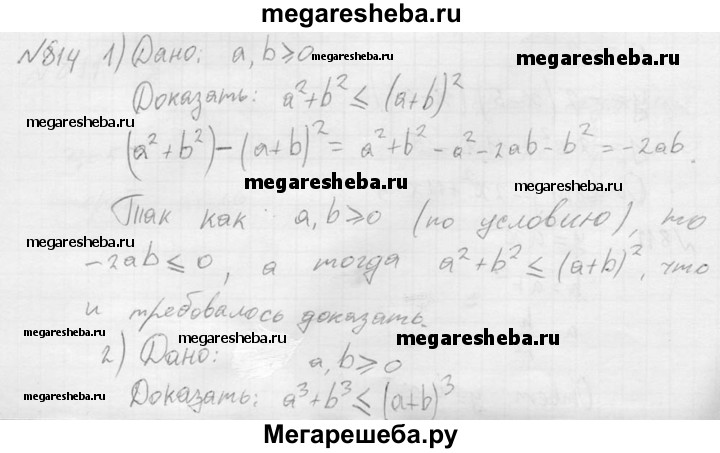 megaresheba.ru
№814 1) Дано: a, b ≥ 0
megaresheba.ru megaresheba.ru
Доказать: a² + b² ≤ (a+b)²
megaresheba.ru megaresheba.ru
(a² + b²) – (a+b)² = a² + b² – a² – 2ab – b² = –2ab.
megaresheba.ru megaresheba.ru
Так как a, b ≥ 0 (по условию), то
megaresheba.ru
–2ab ≤ 0, а тогда a² + b² ≤ (a+b)², что
и требовалось доказать.
megaresheba.ru megaresheba.ru
2) Дано: a, b ≥ 0
megaresheba.ru megaresheba.ru
Доказать: a³ + b³ ≤ (a+b)³
Мегарешеба.ру